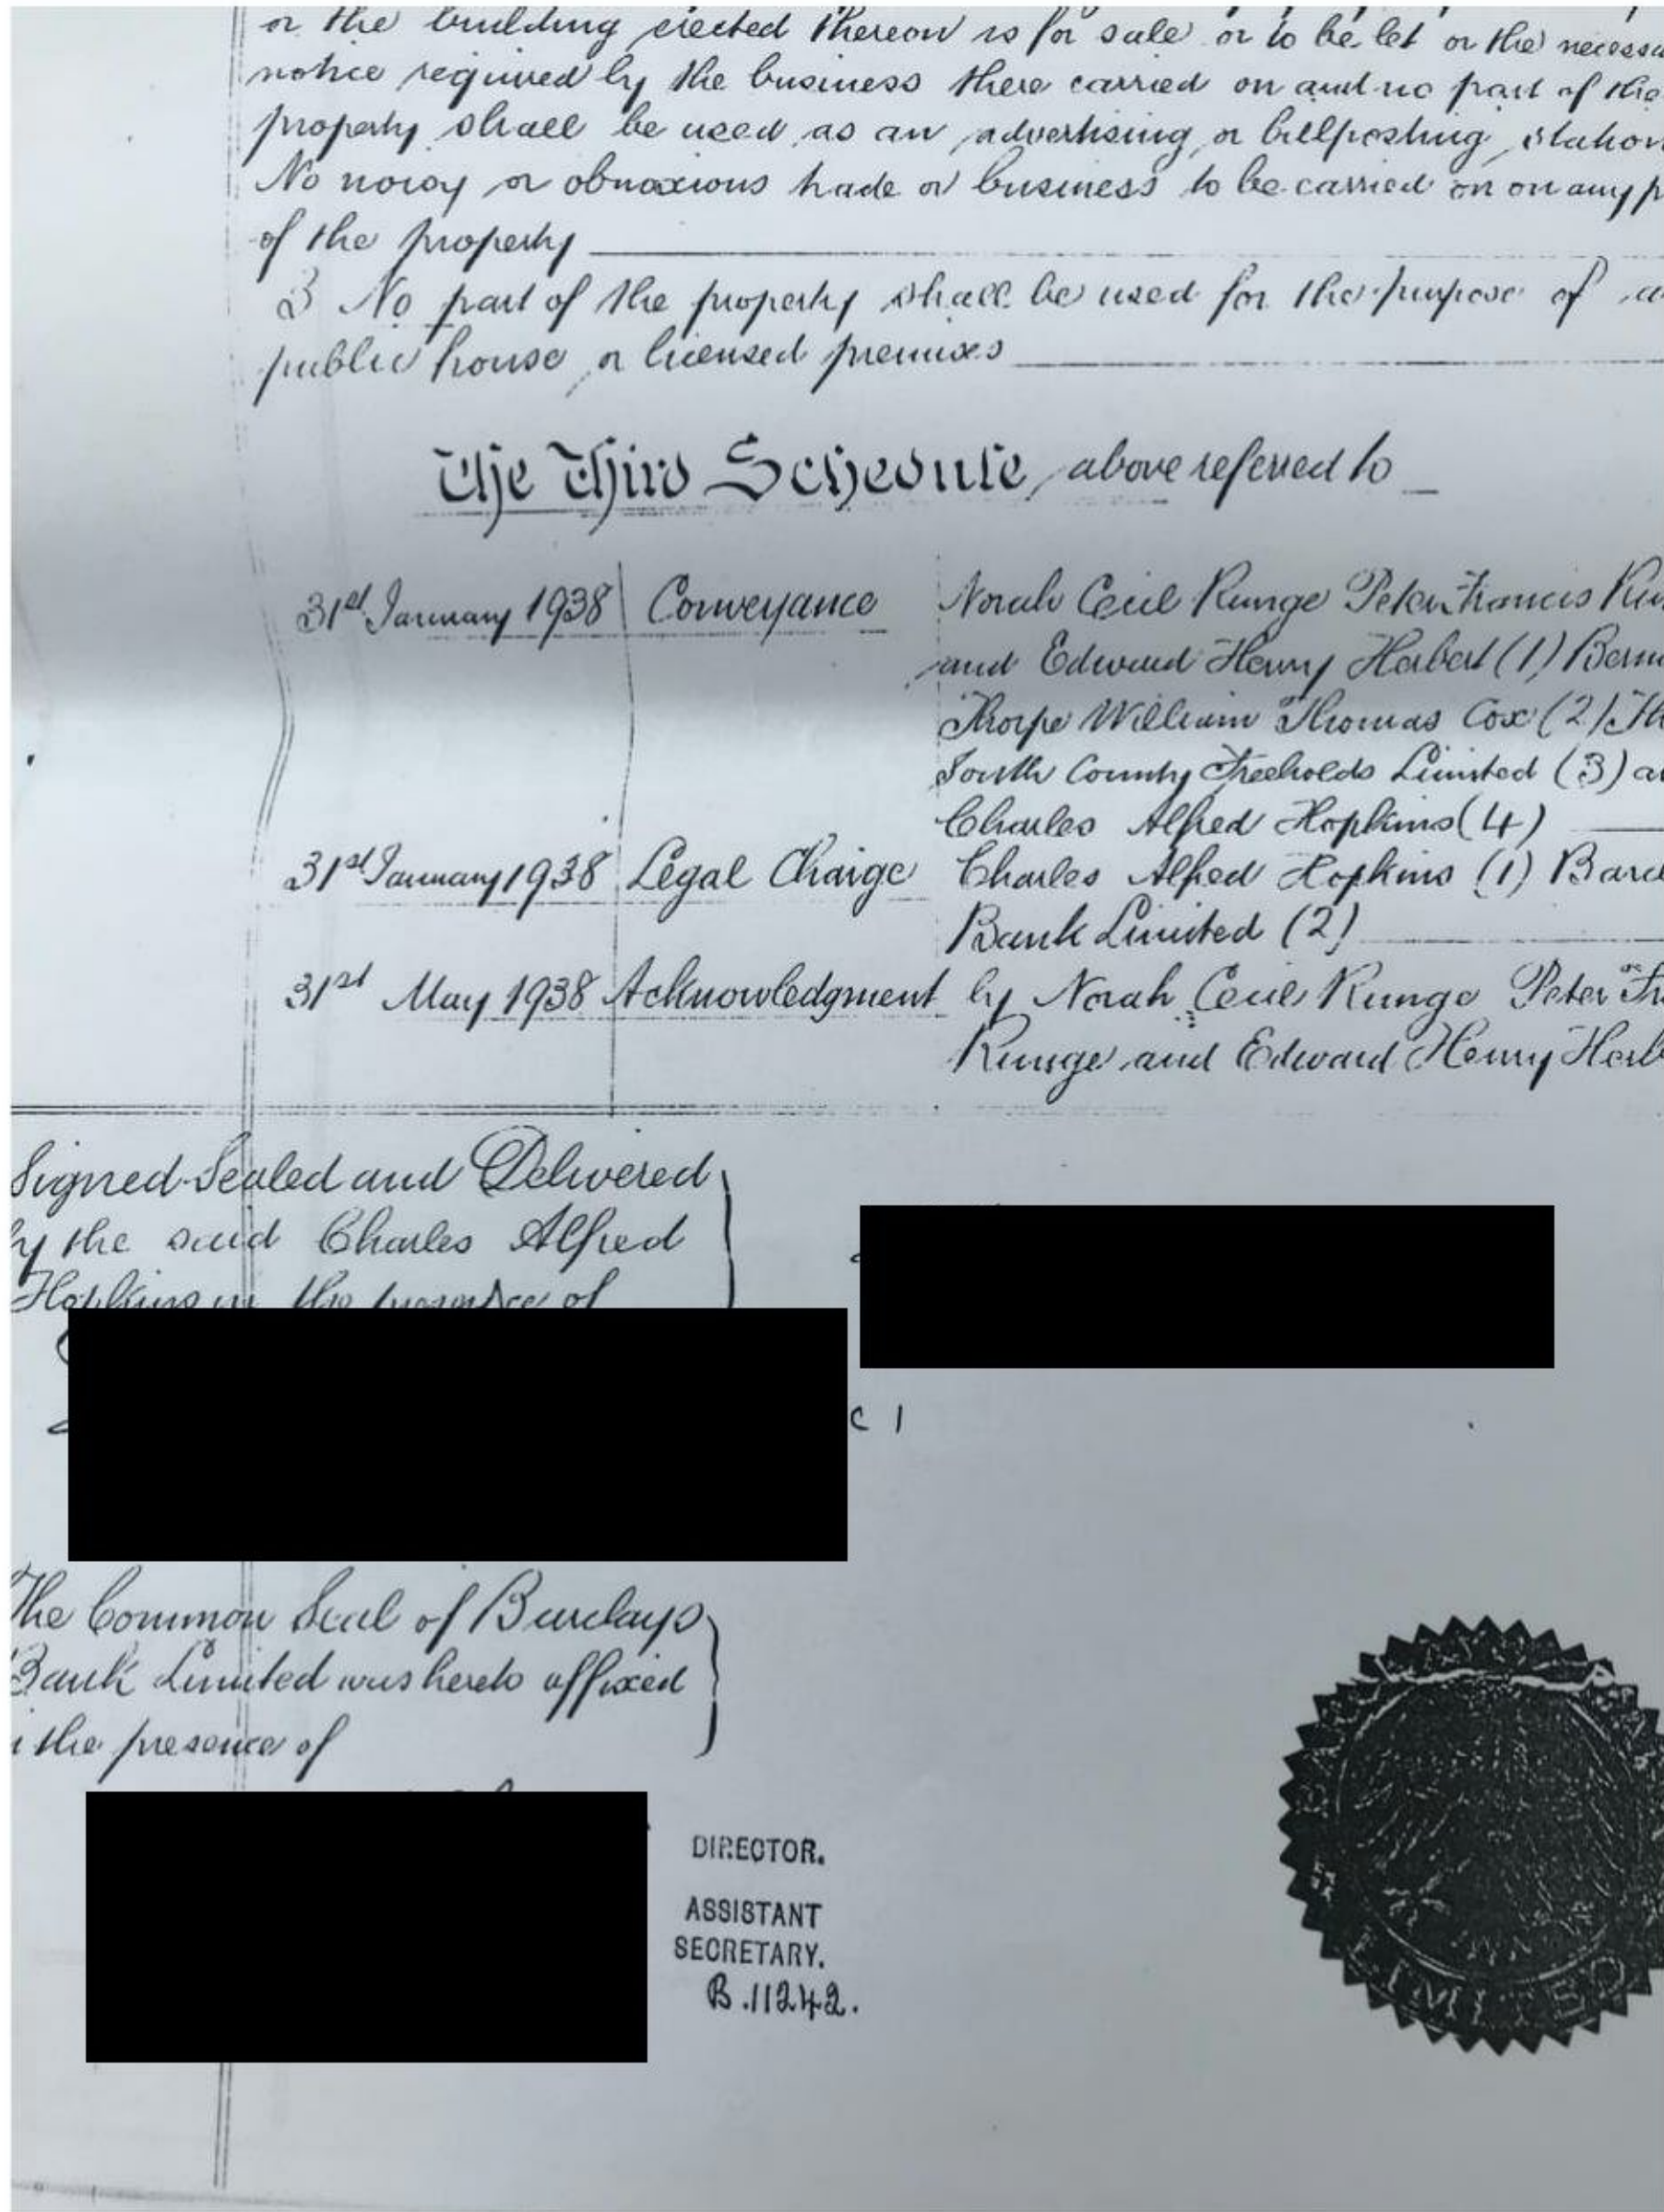 or the building erected thereon is for sale or to be let or the necessa
notice required by the business there carried on and no part of the
property shall be used as an advertising or billposting station
No noisy or obnoxious trade or business to be carried on on any p
of the property
3 No part of the property shall be used for the purpose of a
public house or licensed premises
The Third Schedule above referred to
31st January 1938 Conveyance Norah Cecil Runge Peter Francis Ru
and Edward Henry Herbert (1) Berna
Thorpe William Thomas Cox (2) Th
South County Freeholds Limited (3) a
Charles Alfred Hopkins (4)
31st January 1938 Legal Charge Charles Alfred Hopkins (1) Barc
Bank Limited (2)
31st May 1938 Acknowledgment by Norah Cecil Runge Peter Fr
Runge and Edward Henry Herb
Signed Sealed and Delivered
by the said Charles Alfred
Hopkins in the presence of
C 1
The Common Seal of Barclays
Bank Limited was hereto affixed
n the presence of
DIRECTOR.
ASSISTANT
SECRETARY.
B.11242.
LIMITED